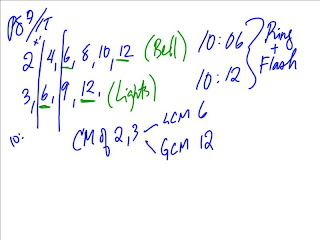 P8 #17
2, 4, 6, 8, 10, 12 (Bell)
3, 6, 9, 12, (Lights)
10:06
10:12
Ring + Flash
10:
CM of 2, 3
LCM 6
GCM 12